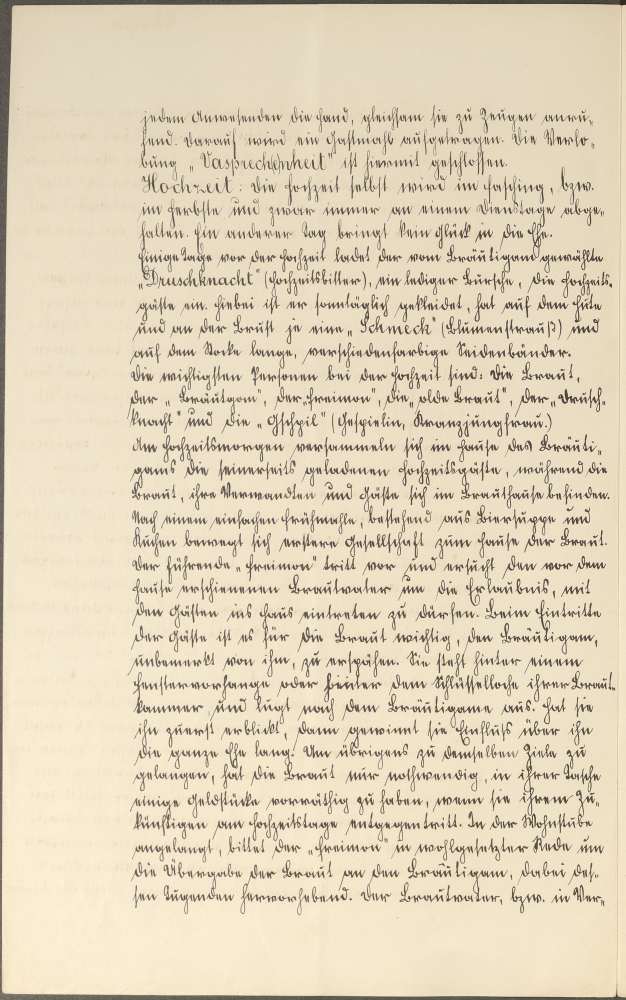 jedem Anwesenden die Hand, gleichsam sie zu Zeugen anru-
fend. Darauf wird ein Gastmahl aufgetragen. Die Verlo-
bung „Vasprechenheit“ ist hiermit geschlossen.
Hochzeit: Die Hochzeit selbst wird im Fasching, bzw.
im Herbste und zwar immer an einem Dienstage abge-
halten. Ein anderer Tag bringt kein Glück in die Ehe.
Einige Tage vor der Hochzeit ladet der vom Bräutigam gewählte
„Druschknacht“ (Hochzeitsbitter), ein lediger Bursche, die Hochzeits-
gäste ein. Hiebei ist er sonntäglich gekleidet, hat auf dem Hute
und an der Brust je eine „Schmeck“ (Blumenstrauß) und
auf dem Stocke lange, verschiedenfarbige Seidenbänder.
Die wichtigsten Personen bei der Hochzeit sind: Die Braut,
der „Bräutgon“, der „Freimon“, die „olde Braut“, der „Drusch-
knacht“ und die „Gschpil“ (Gespielin, Kranzjungfrau.)
Am Hochzeitsmorgen versammeln sich im Hause des Bräuti-
gams die seinerseits geladenen Hochzeitsgäste, während die
Braut, ihre Verwandten und Gäste sich im Brauthause befinden.
Nach einem einfachen Frühmahle, bestehend aus Biersuppe und
Kuchen bewegt sich erstere Gesellschaft zum Hause der Braut.
Der führende „Freimon“ tritt vor und ersucht den vor dem
Hause erschienenen Brautvater um die Erlaubnis, mit
den Gästen ins Haus eintreten zu dürfen. Beim Eintritte
der Gäste ist es für die Braut wichtig, den Bräutigam,
unbemerkt von ihm, zu erspähen. Sie steht hinter einem
Fenstervorhange oder hinter dem Schlüsselloche ihrer Braut-
kammer und lugt nach dem Bräutigame aus. Hat sie
ihn zuerst erblickt, dann gewinnt sie Einfluß über ihn
die ganze Ehe lang. Um übrigens zu demselben Ziele zu
gelangen, hat die Braut nur nothwendig, in ihrer Tasche
einige Geldstücke vorräthig zu haben, wenn sie ihrem Zu-
künftigen am Hochzeitstage entgegentritt. In der Wohnstube
angelangt, bittet der „Freimon“ in wohlgesetzter Rede um
die Übergabe der Braut an den Bräutigam, dabei des-
sen Tugenden hervorhebend. Der Brautvater, bzw. in Ver-